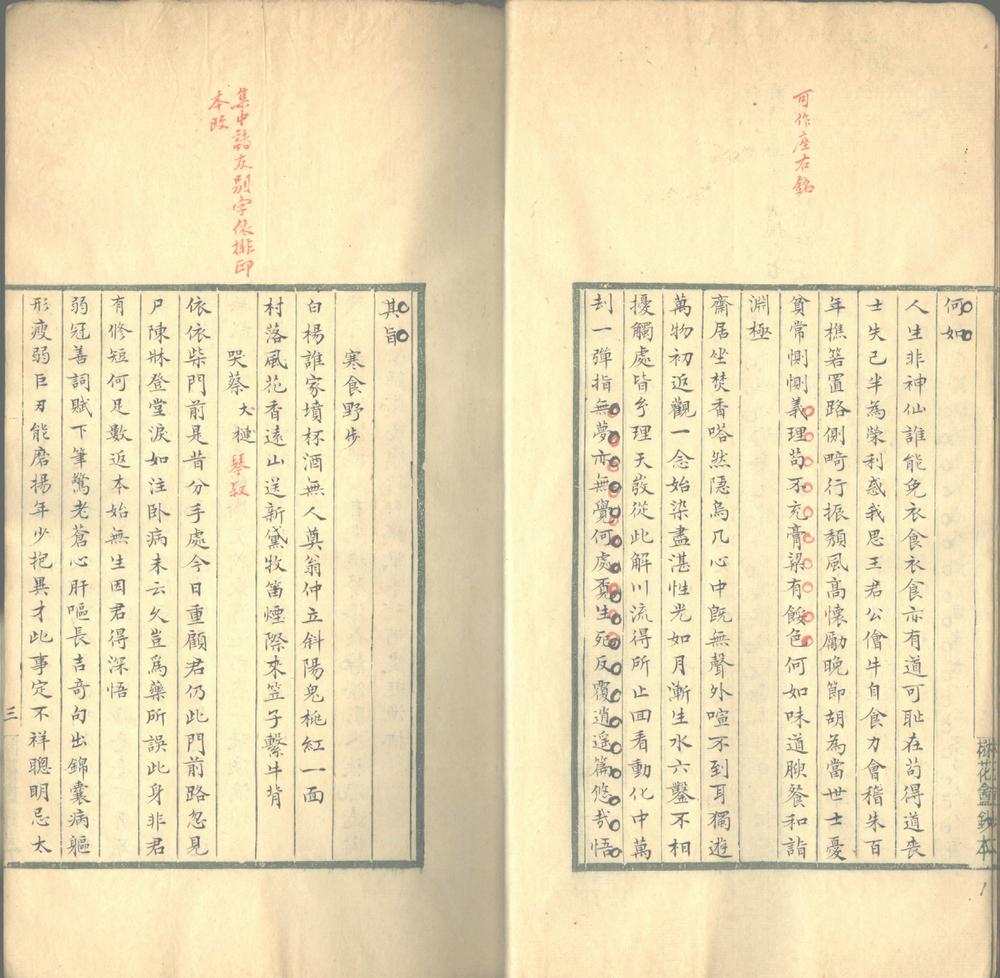 可作座右銘
何如
人生非神仙誰能免衣食衣食亦有道可恥在苟得道喪
士失己半為榮利惑我思王君公儈牛自食力會稽朱百
年樵箬置路側畸行振頹風高懷勵晚節胡為當世士憂
貧常惻惻義理苟不充膏粱有餒色何如味道腴餐和詣
淵極
齋居坐焚香嗒然隱烏几心中既無聲外喧不到耳獨遊
萬物初返觀一念始染盡湛性光如月漸生水六鑿不相
擾觸處皆予理天敚從此解川流得所止回看動化中萬
刦一彈指無夢亦無覺何處覓生死反覆逍遙篇悠哉悟
栿花盦鈔本
集中諸友別字依排印
本改
其旨
寒食野步
白楊誰家墳杯酒無人奠翁仲立斜陽鬼桃紅一面
村落風花香遠山送新黛牧笛煙際來笠子繫牛背
哭蔡犬槤琴叔
依依柴門前是昔分手處今日重顧君仍此門前路忽見
尸陳牀登堂淚如注卧病未云久豈爲藥所誤此身非君
有修短何足數返本始無生因君得深悟
弱冠善詞賦下筆驚老蒼心肝嘔長吉奇句出錦囊病軀
形瘦弱巨刃能磨揚年少抱異才此事定不祥聰明忌太
三